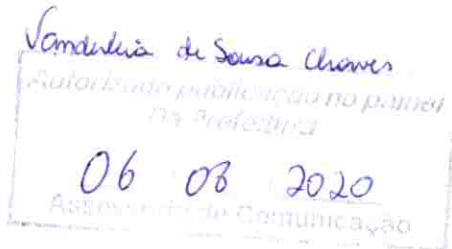 Vanderleia de Sousa Chaves
Autorizado publicação no painel
Da Prefeitura
06 08 2020
Assessoria de Comunicação